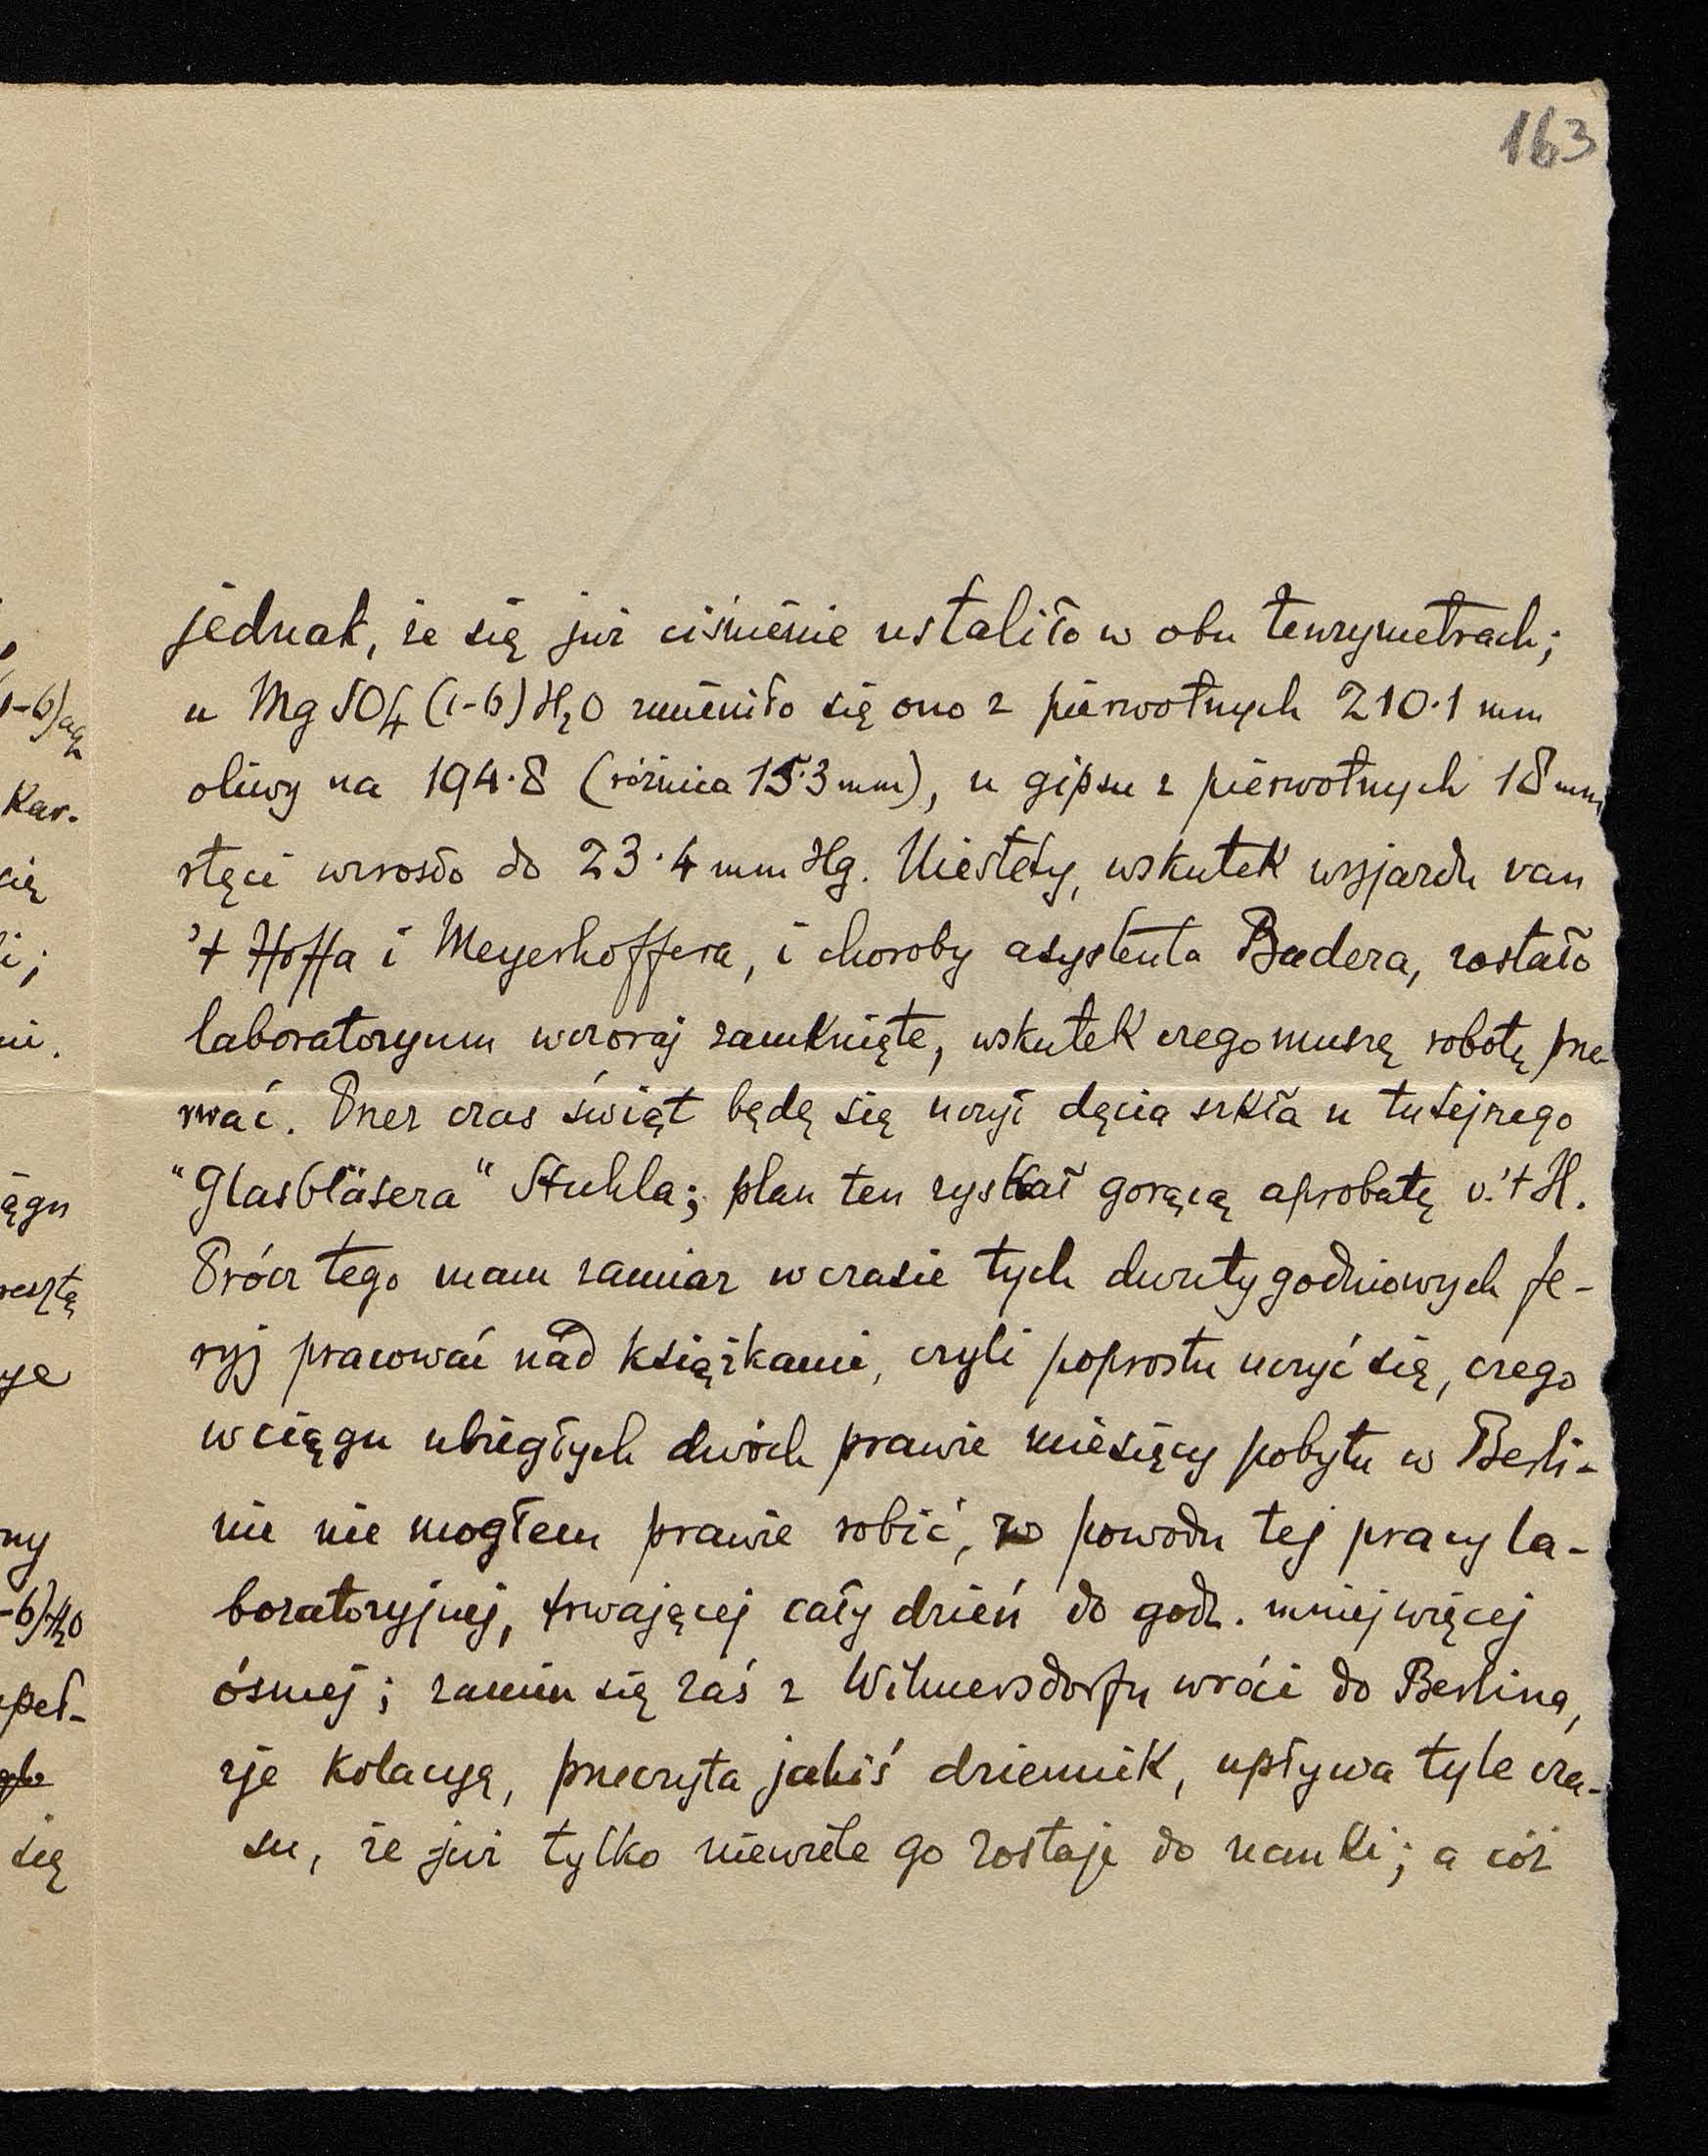 163
jednak, że się już ciśnienie ustaliło w obu tenzymetrach;
u MgSO4 (1-6) H2O zmieniło się ono z pierwotnych 210·1 mm
oliwy na 194·8 (różnica 15·3 mm), u gipsu z pierwotnych 18 mm
rtęci wzrosło do 23·4 mm Hg. Niestety, wskutek wyjazdu van
't Hoffa i Meyerhoffera, i choroby asystenta Badera, zostało
laboratoryum wczoraj zamknięte, wskutek czego muszę robotę prze-
rwać. Przez czas świąt będę się uczył dęcia szkła u tutejszego
"Glasbläsera" Stuhla; plan ten zyskał gorącą aprobatę v.'t H.
Prócz tego mam zamiar w czasie tych dwutygodniowych fe-
ryj pracować nad książkami, czyli poprostu uczyć się, czego
w ciągu ubiegłych dwóch prawie miesięcy pobytu w Berli-
nie nie mogłem prawie robić, z powodu tej pracy la-
boratoryjnej, trwającej cały dzień do godz. mniej więcej
ósmej; zanim się zaś z Wilmersdorfu wróci do Berlina,
zje kolacyą, przeczyta jakiś dziennik, upływa tyle cza-
su, że już tylko niewiele go zostaje do nauki; a cóż
1-6) aq
Kar.
cię
li;
ni.
ągu
resztę
ye
ny
-6)H2O
peł-
się